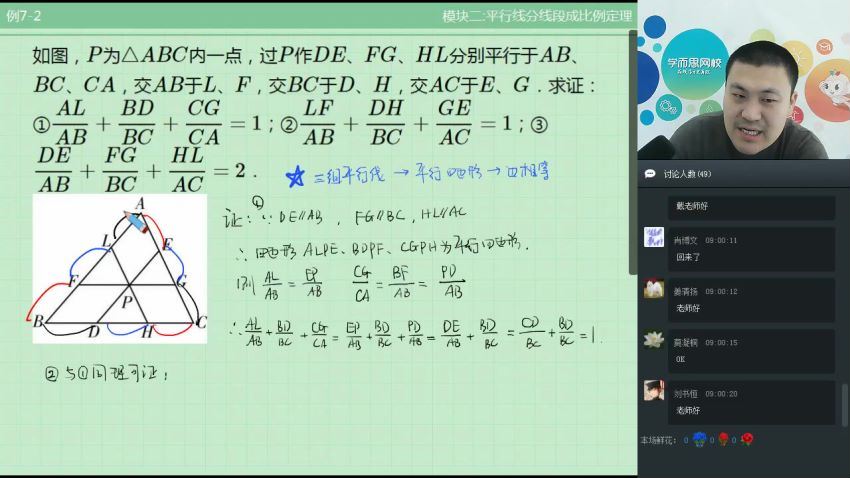 例7-2
模块二:平行线分线段成比例定理
如图，P为△ABC内一点，过P作DE、FG、HL分别平行于AB、
BC、CA，交AB于L、F，交BC于D、H，交AC于E、G．求证：
①AL/AB + BD/BC + CG/CA = 1；②LF/AB + DH/BC + GE/AC = 1；③
DE/AB + FG/BC + HL/AC = 2．
三组平行线 → 平行四边形 → 四相等
① 证：∵ DE∥AB，FG∥BC，HL∥AC
∴ 四边形 ALPE、BDPF、CGPH为平行四边形．
则 AL/AB = EP/AB CG/CA = BF/AB = PD/AB
∴ AL/AB + BD/BC + CG/CA = EP/AB + BD/BC + PD/AB = DE/AB + BD/BC = CD/BC + BD/BC = 1．
② 与①同理可证；
A
L
E
F
G
P
B
D
H
C
学而思网校
讨论人数(49)
戴老师好
肖博文 09:00:11
回来了
姜清扬 09:00:12
老师好
莫凝桐 09:00:15
OK
刘书恒 09:00:20
老师好
本场鲜花： 0 0 0